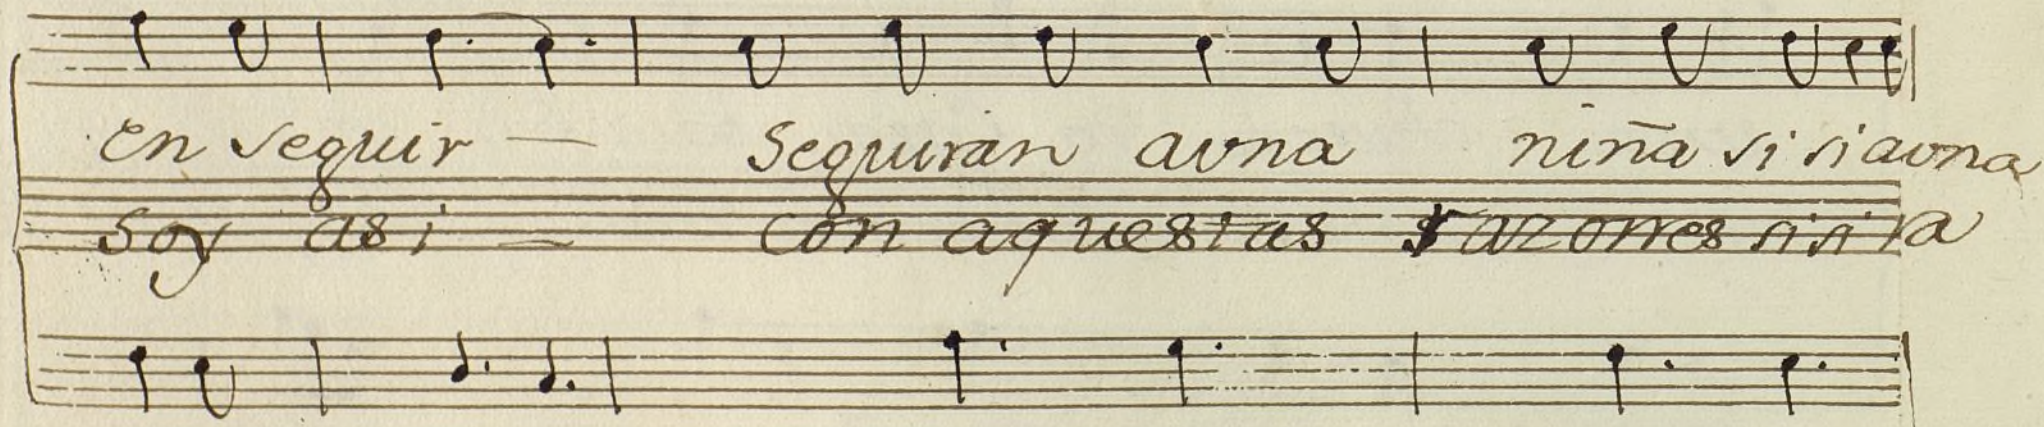 en seguir — seguiran auna niña si si auna
soy asi — con aquestas razones si si la